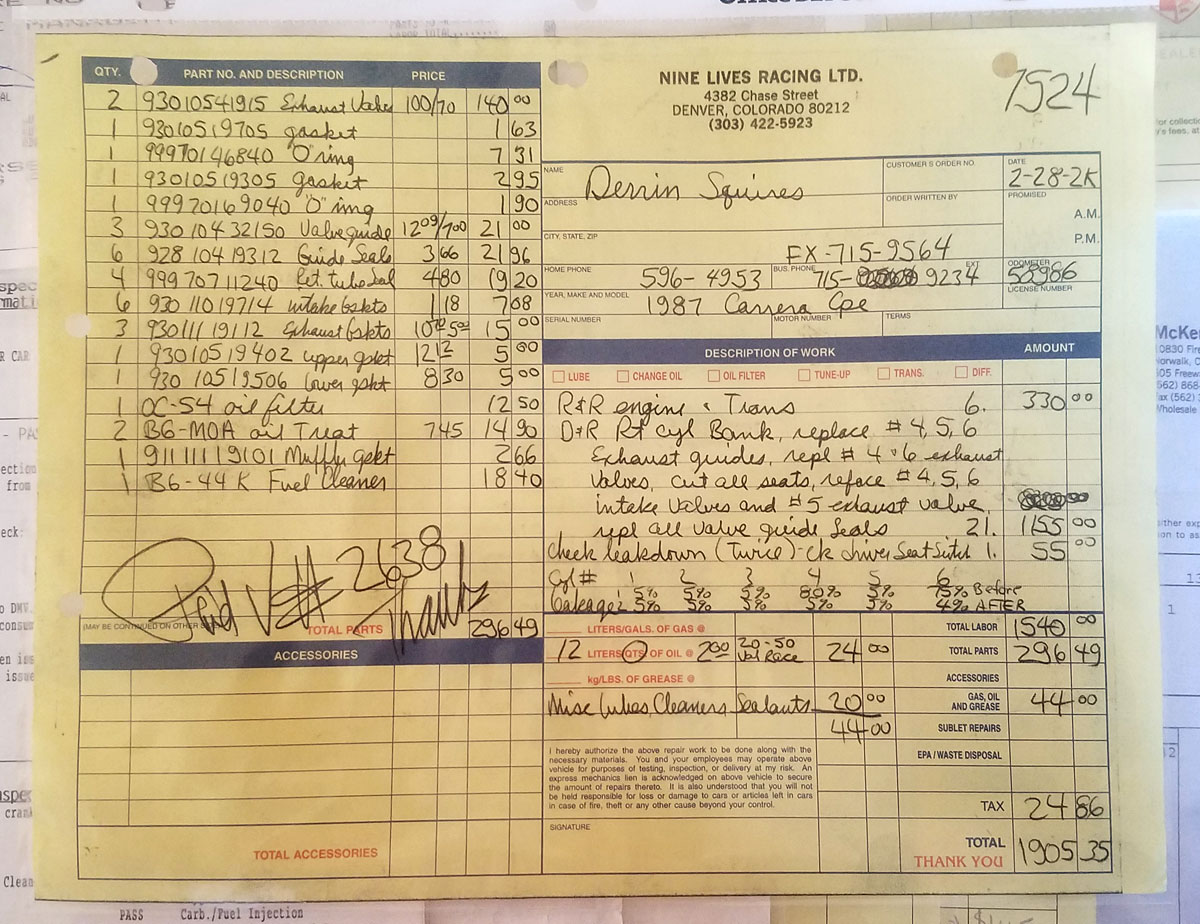 QTY. PART NO. AND DESCRIPTION PRICE
2 93010541915 Exhaust Valve 100/70 140 00
1 93010519705 gasket 1 63
1 99970146840 "O" ring 7 31
1 93010519305 gasket 2 95
1 99970169040 "O" ring 1 90
3 93010432150 Valve guide 12 09/7 00 21 00
6 92810419312 Guide Seals 3 66 21 96
4 99970711240 Ret. tube Seal 4 80 19 20
6 93011019714 intake Gskts 1 18 7 08
3 93011119112 Exhaust Gskts 5 00 15 00
1 93010519402 upper gskt 12 12 5 00
1 93010519506 lower gskt 8 30 5 00
1 OC-54 oil filter 12 50
2 BG-MOA oil Treat 7 45 14 90
1 91111119101 Muffler gskt 2 66
1 BG-44K Fuel Cleaner 18 40
Paid V# 2638
Thanks
(MAY BE CONTINUED ON OTHER TOTAL PARTS 296 49
ACCESSORIES
TOTAL ACCESSORIES
NINE LIVES RACING LTD.
4382 Chase Street
DENVER, COLORADO 80212
(303) 422-5923
7524
NAME Derrin Squires CUSTOMER'S ORDER NO. DATE 2-28-2K
ADDRESS ORDER WRITTEN BY PROMISED
A.M.
CITY, STATE, ZIP FX-715-9564 P.M.
HOME PHONE 596-4953 BUS. PHONE 715- 9234 EXT ODOMETER 58986
YEAR, MAKE AND MODEL 1987 Carrera Cpe LICENSE NUMBER
SERIAL NUMBER MOTOR NUMBER TERMS
DESCRIPTION OF WORK AMOUNT
LUBE CHANGE OIL OIL FILTER TUNE-UP TRANS. DIFF.
R&R engine & Trans 6. 330 00
D&R Rt cyl Bank, replace #4,5,6
Exhaust guides, repl #4 & 6 exhaust
Valves, cut all seats, reface #4,5,6
intake Valves and #5 exhaust valve,
repl all valve guide Seals 21. 1155 00
Check leakdown (Twice)-ck driver Seat Switch 1. 55 00
Cyl # 1 2 3 4 5 6
Leakage: 5% 5% 5% 80% 5% 75% Before
5% 5% 5% 5% 5% 4% AFTER
LITERS/GALS. OF GAS @ TOTAL LABOR 1540 00
12 LITERS/QTS. OF OIL @ 2 00 20-50 Val Race 24 00 TOTAL PARTS 296 49
kg/LBS. OF GREASE @ ACCESSORIES
Misc Lubes, Cleaners Sealants 20 00 GAS, OIL AND GREASE 44 00
44 00 SUBLET REPAIRS
EPA / WASTE DISPOSAL
I hereby authorize the above repair work to be done along with the
necessary materials. You and your employees may operate above
vehicle for purposes of testing, inspection, or delivery at my risk. An
express mechanics lien is acknowledged on above vehicle to secure
the amount of repairs thereto. It is also understood that you will not
be held responsible for loss or damage to cars or articles left in cars
in case of fire, theft or any other cause beyond your control.
TAX 24 86
SIGNATURE
TOTAL 1905 35
THANK YOU
PASS Carb./Fuel Injection